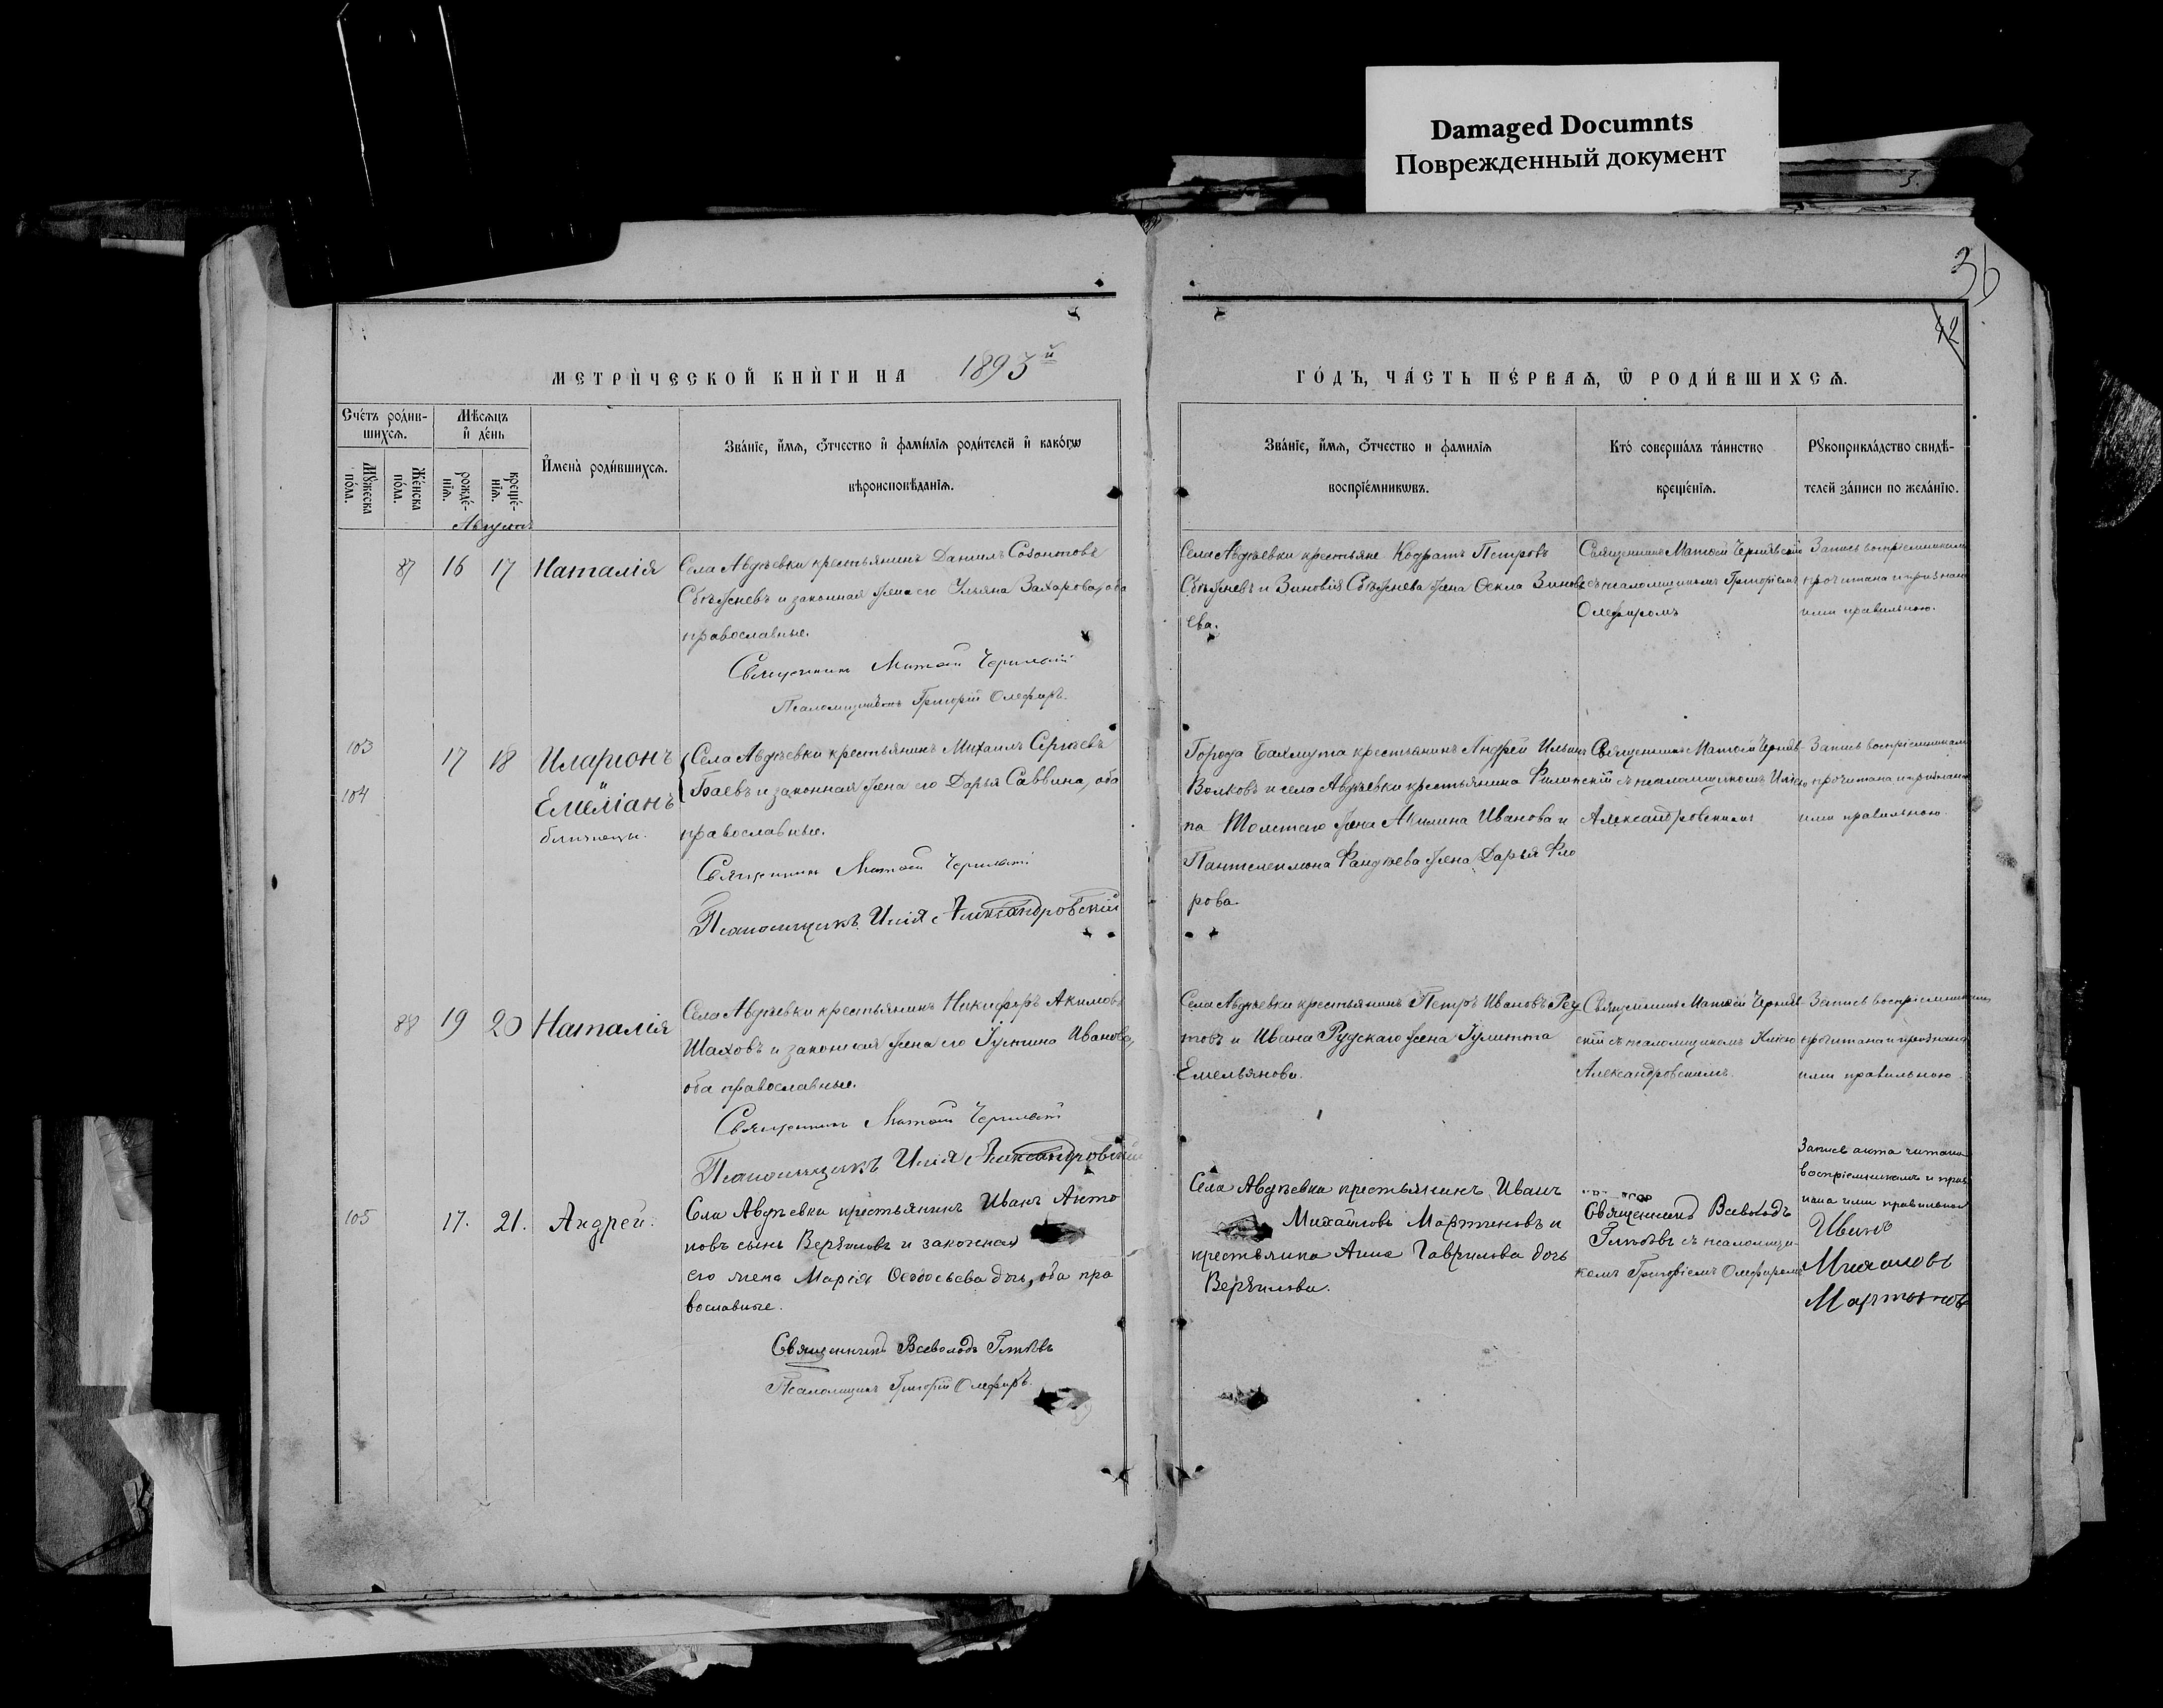 Damaged Documnts
Поврежденный документ
36
42
МЕТРИ́ЧЕСКОЙ КНИ́ГИ НА 1893й
ГО́ДЪ, ЧА́СТЬ ПЕ́РВАѦ, Ѽ РОДИ́ВШИХСѦ.
Сче́тъ роди́в-
шихсѧ.
Мꙋ́жеска по́ла.
Же́нска по́ла.
Мѣ́сѧцъ
и҆ де́нь
рожде́-
нїѧ.
креще́-
нїѧ.
И҆мена̀ роди́вшихсѧ.
Зва́нїе, и҆́мѧ, ѻ҆́тчество и҆ фами́лїѧ роди́телей и҆ како́гѡ
вѣроисповѣ́данїѧ.
Зва́нїе, и҆́мѧ, ѻ҆́тчество и фами́лїѧ
воспрїе́мникѡвъ.
Кто́ соверша́лъ та́инство
креще́нїѧ.
Рꙋкоприкла́дство свидѣ́-
телей за́писи по жела́нїю.
Августъ
87 16 17 Наталія
Села Авдѣевки крестьянинъ Даниилъ Созонтовъ
Сбѣжневъ и законная жена его Ульяна Захарова, оба
православные.
Священникъ Матѳей Чернявскій
Псаломщикъ Григорій Олефиръ.
Села Авдѣевки крестьяне Кодратъ Петровъ
Сбѣжневъ и Зиновія Сбѣжнева жена Ѳекла Зиновь
ева.
Священникъ Матѳей Чернявскій
съ псаломщикомъ Григоріемъ
Олефиромъ
Запись воспріемниками
прочитана и признана
ими правильною.
103
104
17 18 Иларіонъ
и
Емеліанъ
близнецы.
Села Авдѣевки крестьянинъ Михаилъ Сергѣевъ
Баевъ и законная жена его Дарья Саввина, оба
православные.
Священникъ Матѳей Чернявскій
Псаломщикъ Илія Александровскій
Города Бахмута крестьянинъ Андрей Ильинъ
Волковъ и села Авдѣевки крестьянина Филип
па Толстаго жена Акилина Иванова и
Пантелеимона Фандѣева жена Дарья Фло
рова.
Священникъ Матѳей Черняв-
скій съ псаломщикомъ Иліею
Александровскимъ
Запись воспріемниками
прочитана и признана
ими правильною.
88 19 20 Наталія
Села Авдѣевки крестьянинъ Никифоръ Акимовъ
Шаховъ и законная жена его Іустина Иванова,
оба православные.
Священникъ Матѳей Чернявскій
Псаломщикъ Илія Александровскій
Села Авдѣевки крестьянинъ Петръ Ивановъ Реу
товъ и Ивана Рудскаго жена Іулитта
Емельянова.
Священникъ Матѳей Черняв-
скій съ псаломщикомъ Иліею
Александровскимъ.
Запись воспріемниками
прочитана и признана
ими правильною
105 17. 21. Андрей.
Села Авдѣевки крестьянинъ Иванъ Анто
новъ сынъ и законная
его жена Марія Ѳеодосьева дочь, оба пра
вославные.
Священникъ Всеволодъ
Псаломщикъ Григорій Олефиръ.
Села Авдѣевки крестьянинъ Иванъ
Михайловъ Мартыновъ и
крестьянка Анна Гаврилова дочь
Священникъ Всеволодъ
съ псаломщи-
комъ Григоріемъ Олефиромъ
Запись акта читана
воспріемникамъ и приз
нана ими правильной
Иванъ
Михаиловъ
Мартыновъ